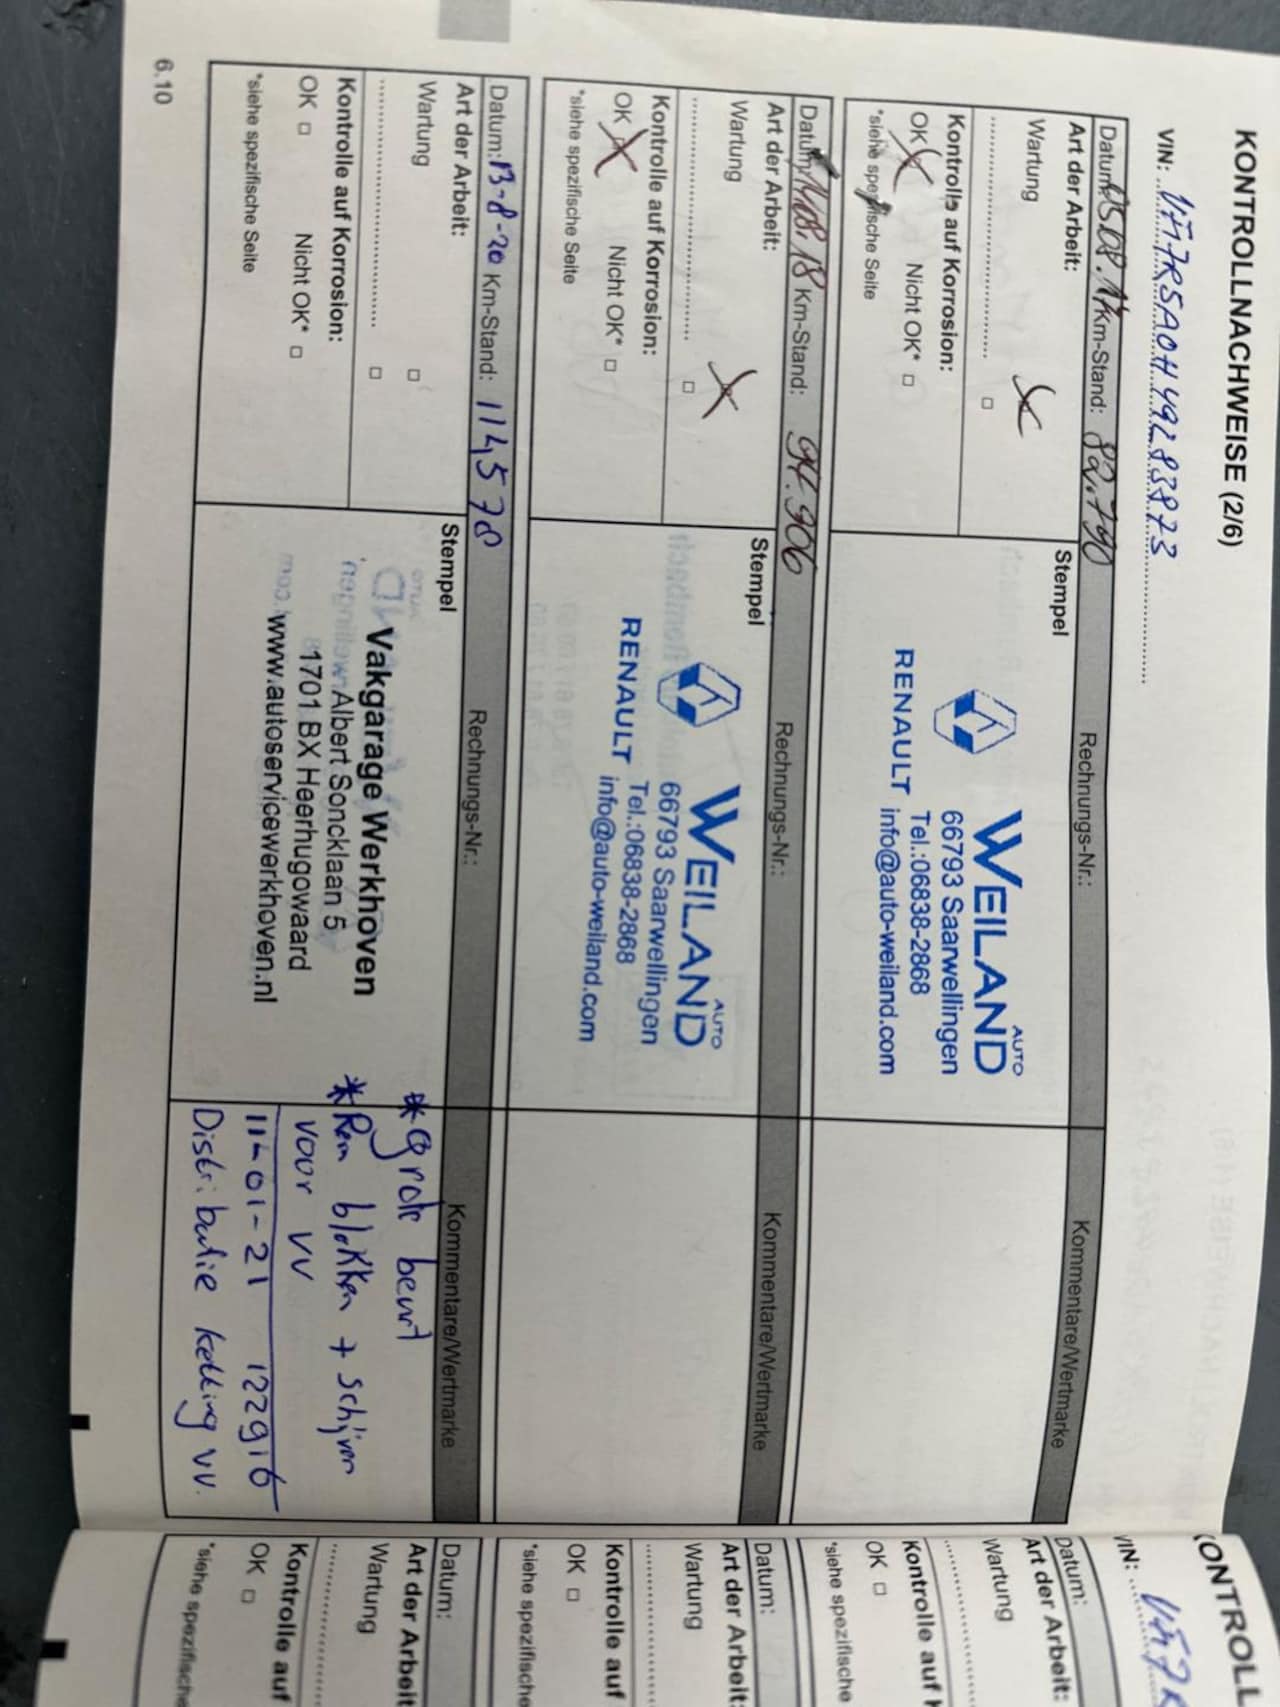 KONTROLLNACHWEISE (2/6)
VIN: VF17RSA0H49283873
Datum: 05.08.17 Km-Stand: 82.790 Rechnungs-Nr.: Kommentare/Wertmarke
Art der Arbeit: Stempel
Wartung
Kontrolle auf Korrosion:
OK Nicht OK*
*siehe spezifische Seite
WEILAND AUTO
66793 Saarwellingen
Tel.:06838-2868
RENAULT info@auto-weiland.com
Datum: 14.08.18 Km-Stand: 94.906 Rechnungs-Nr.: Kommentare/Wertmarke
Art der Arbeit: Stempel
Wartung
Kontrolle auf Korrosion:
OK Nicht OK*
*siehe spezifische Seite
WEILAND AUTO
66793 Saarwellingen
Tel.:06838-2868
RENAULT info@auto-weiland.com
Datum: 13-8-20 Km-Stand: 114,578 Rechnungs-Nr.: Kommentare/Wertmarke
Art der Arbeit: Stempel
Wartung
Kontrolle auf Korrosion:
OK Nicht OK*
*siehe spezifische Seite
Vakgarage Werkhoven
Albert Soncklaan 5
1701 BX Heerhugowaard
www.autoservicewerkhoven.nl
* grote beurt
* Rem blokken + schijven
voor VV
11-01-21 122916
Distributie ketting VV.
6.10
KONTROLL
VIN:
Datum:
Art der Arbeit:
Wartung
Kontrolle auf
OK
*siehe spezifische
Datum:
Art der Arbeit:
Wartung
Kontrolle auf
OK
*siehe spezifische
Datum:
Art der Arbeit
Wartung
Kontrolle auf
OK
*siehe spezifische